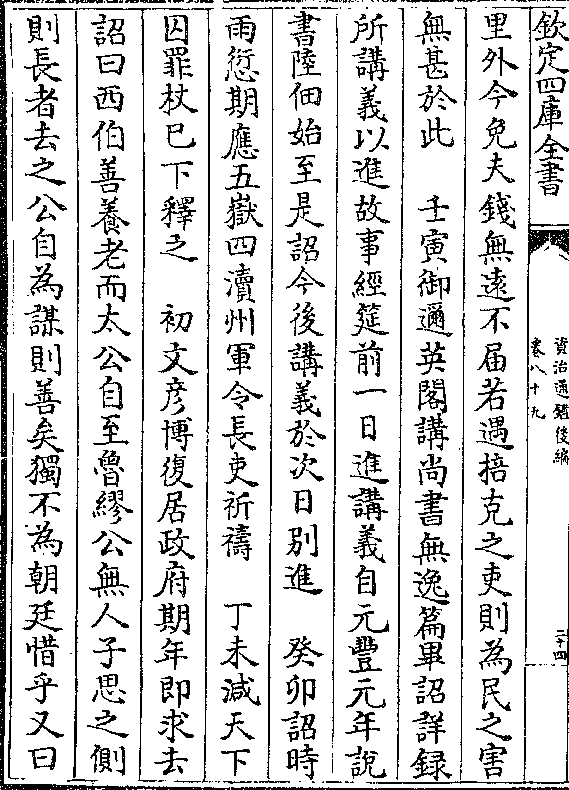 欽定四庫全書
資治通鑑後編
卷八十九
二十四
里外今免夫錢無遠不届若遇掊克之吏則為民之害
無甚於此　壬寅御邇英閣講尚書無逸篇畢詔詳録
所講義以進故事經筵前一日進講義自元豐元年說
書陸佃始至是詔今後講義於次日别進　癸卯詔時
雨愆期應五嶽四瀆州軍令長吏祈禱　丁未減天下
囚罪杖已下釋之　初文彦博復居政府期年即求去
詔曰西伯善養老而太公自至魯繆公無人子思之側
則長者去之公自為謀則善矣獨不為朝廷惜乎又曰